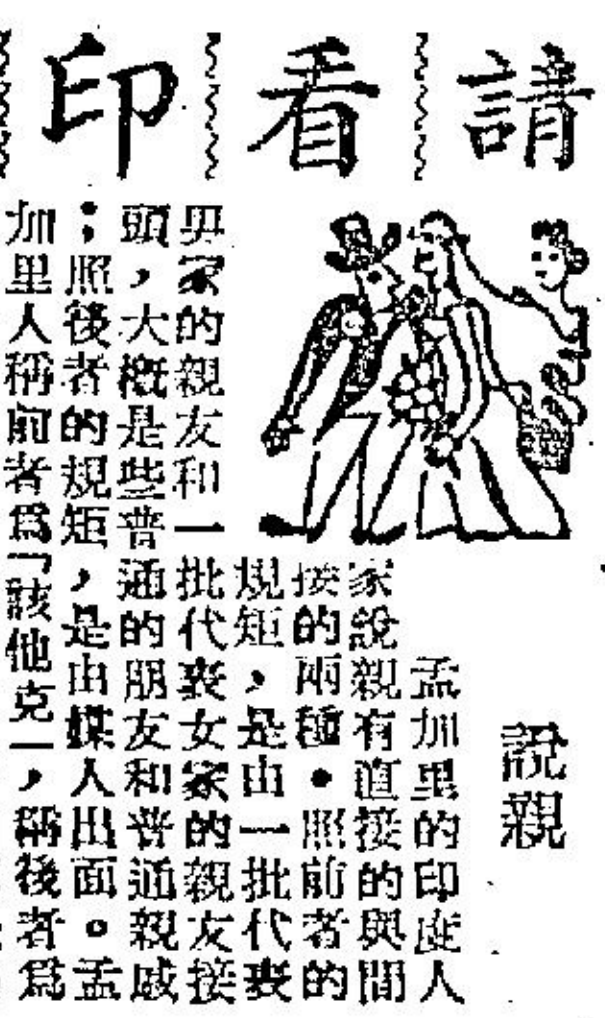 請看印
說親
孟加里的印度人
家說親有直接的與間
接的兩種。照前者的
規矩，是由一批代表
男家的親友和一批代表女家的親友接
頭，大概是些普通的朋友和普通親戚
；照後者的規矩，是由媒人出面。孟
加里人稱前者爲「該他克」，稱後者爲